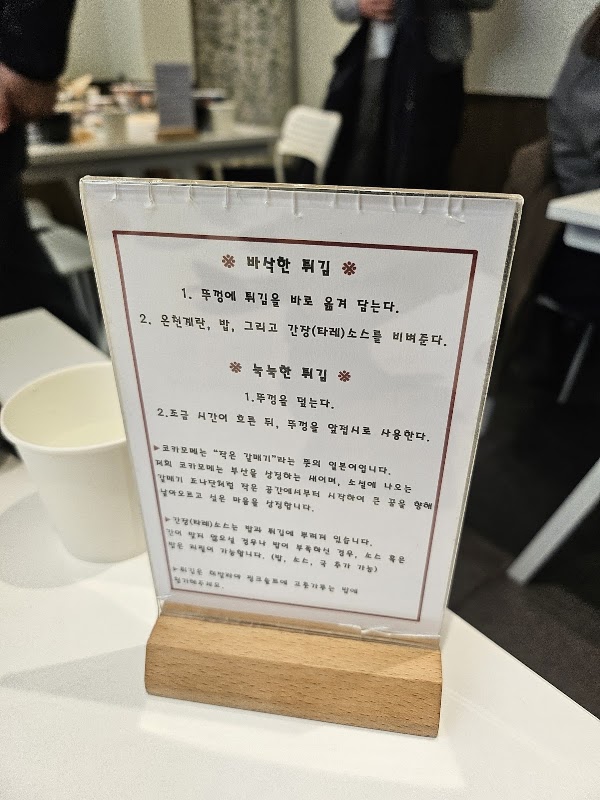 ※ 바삭한 튀김 ※
1. 뚜껑에 튀김을 바로 옮겨 담는다.
2. 온천계란, 밥, 그리고 간장(타레)소스를 비벼준다.
※ 눅눅한 튀김 ※
1.뚜껑을 덮는다.
2.조금 시간이 흐른 뒤, 뚜껑을 앞접시로 사용한다.
▶코카모메는 "작은 갈매기"라는 뜻의 일본어입니다.
저희 코카모메는 부산을 상징하는 새이며, 소설에 나오는
갈매기 조나단처럼 작은 공간에서부터 시작하여 큰 꿈을 향해
날아오르고 싶은 마음을 상징합니다.
▶간장(타레)소스는 밥과 튀김에 뿌려져 있습니다.
간이 맞지 않으실 경우나 밥이 부족하신 경우, 소스 혹은
밥은 리필이 가능합니다. (밥, 소스, 국 추가 가능)
▶튀김은 히말라야 핑크솔트에 고춧가루는 밥에